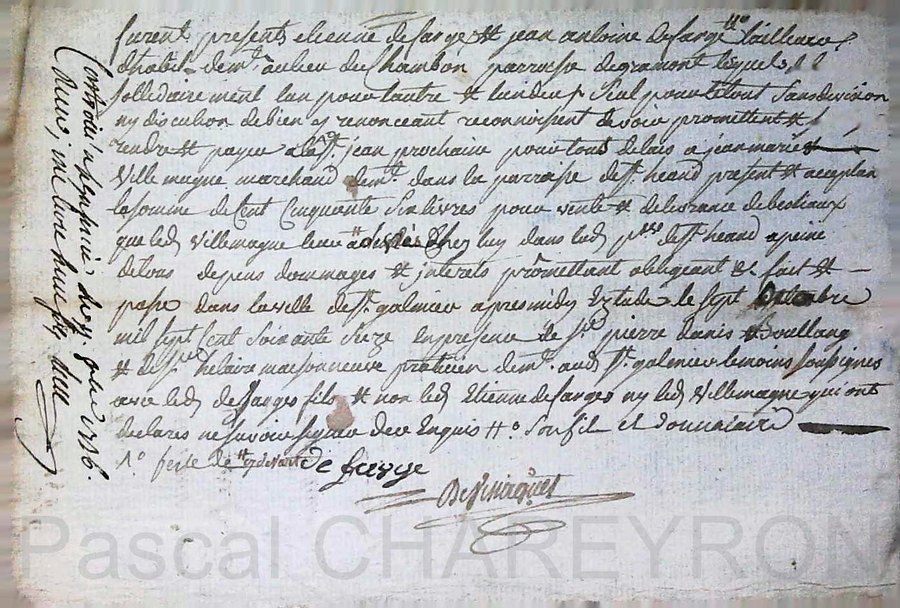 furent presents etienne desarge & jean antoine desarge 11° tailleurs
dhabit dem^t au lieu du Chambon parroisse de gramont lesquels
sollidairement lun pour lautre & lun deux seul pour le tout sans division
ny discution de biens y renonceant reconnoissent devoir promettent &
rendre & payer a la S^t jean prochaine pour tous delais a jean marie
Villemagne marchand dem^t dans la parroisse de S^t heand present & acceptan
la somme de Cent Cinquante six livres pour vente & delivrance de bestiaux
que led Villemagne leur a Chez luy dans lad p^sse de S^t heand a peine
de tous depens dommages & interets promettant obligeant & fait &
passé dans la ville de S^t galmier apres midy Estude le sept
mil sept Cent soixante seize en presence de S^r pierre danis Boullang
& de S^r helaire maisonneuve praticien dem^t aud S^t galmier temoins soussignes
avec led desarges fils & non led Etienne desarges ny led Villemagne qui ont
declarés ne savoir signer de ce Enquis 11° son fil et
1°
Desarge
Controllé a S^t galmier 1776
Reçu une livre huit sols
Pascal CHAREYRON